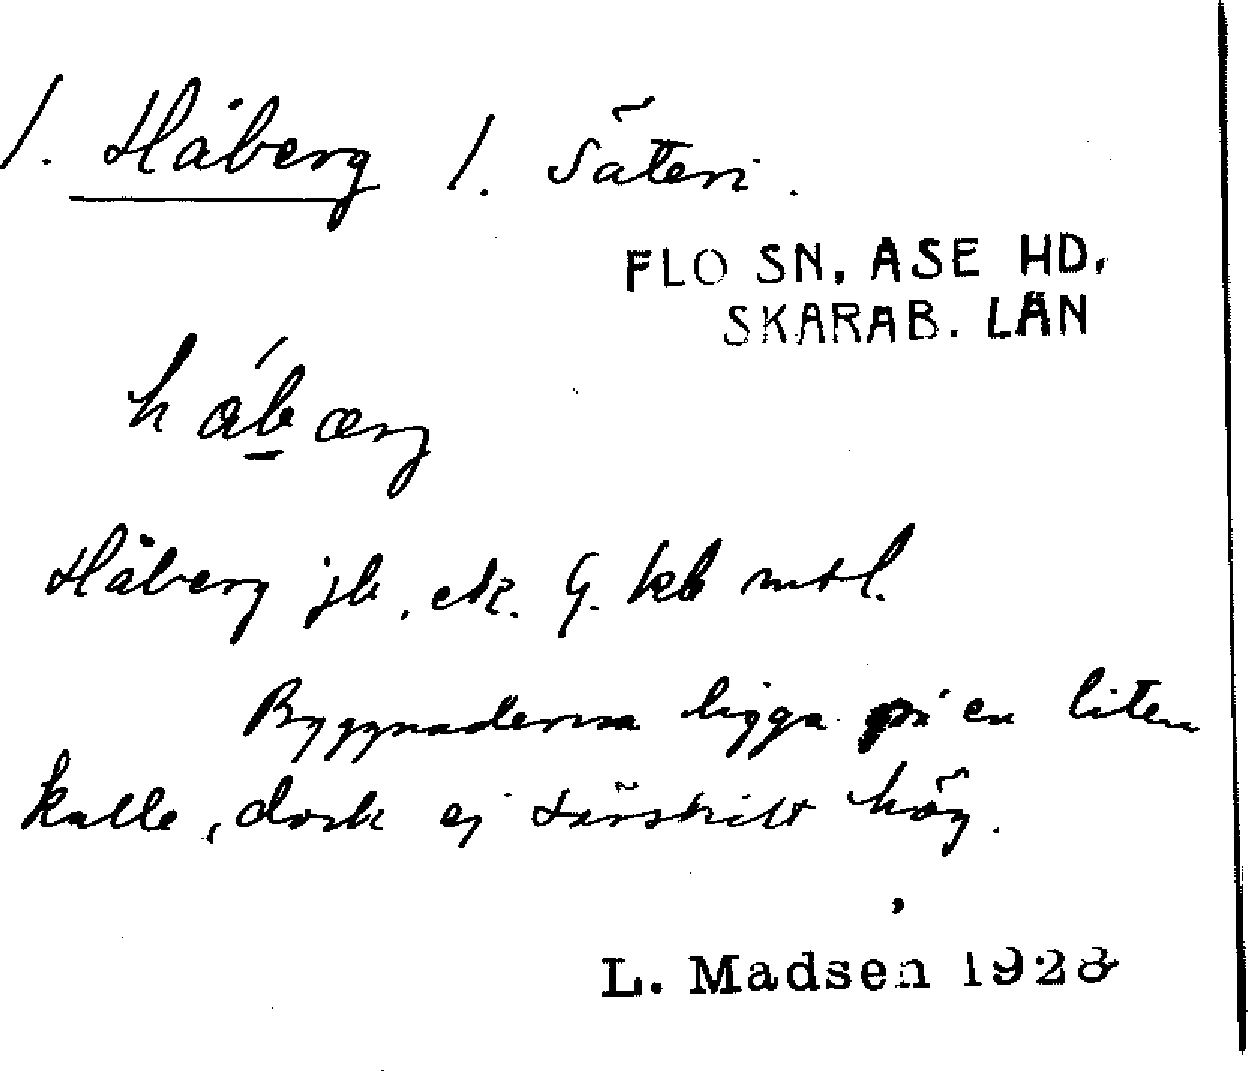 1. Håberg 1. Säteri.
FLO SN. ASE HD.
SKARAB. LÄN
håbærg
Håberg jb, ek. G. kb mtl.
Byggnaderna ligga på en liten
kulle, dock ej särskilt hög.
L. Madsen 1928